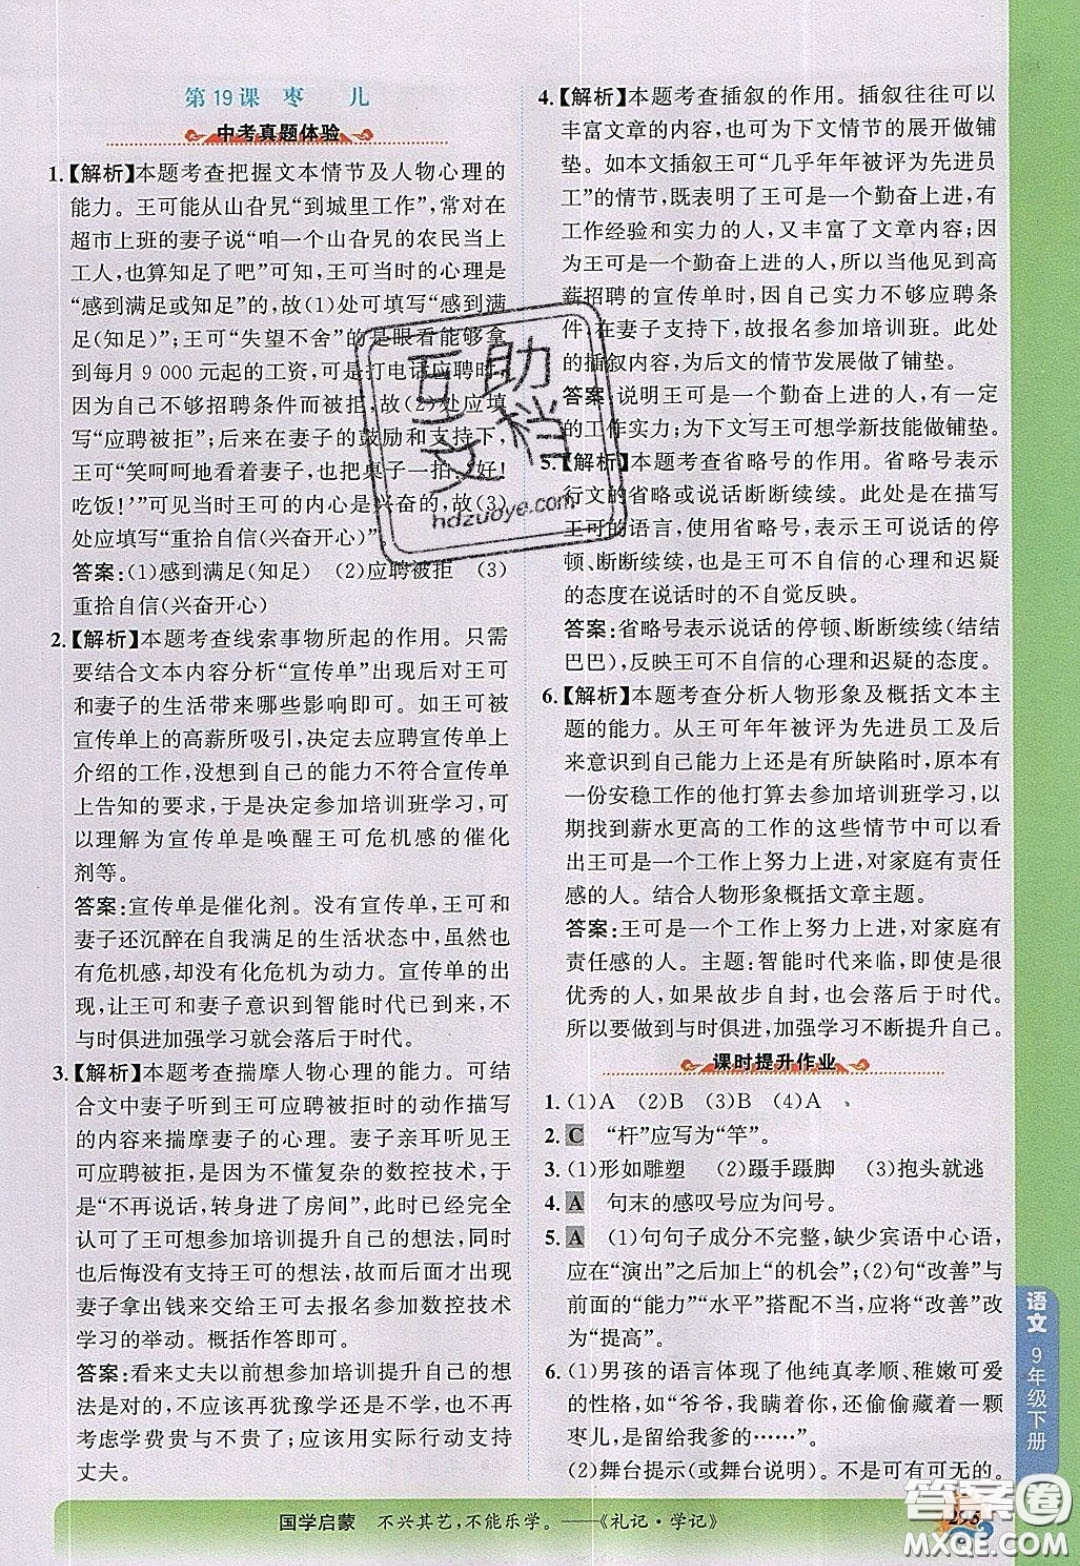 第19课 枣 儿
中考真题体验
1.【解析】本题考查把握文本情节及人物心理的
能力。王可能从山旮旯“到城里工作”,常对在
超市上班的妻子说“咱一个山旮旯的农民当上
工人,也算知足了吧”可知,王可当时的心理是
“感到满足或知足”的,故(1)处可填写“感到满
足(知足)”;王可“失望不舍”的是眼看能够拿
到每月9 000元起的工资,可是打电话应聘时,
因为自己不够招聘条件而被拒,故(2)处应填
写“应聘被拒”;后来在妻子的鼓励和支持下,
王可“笑呵呵地看着妻子,也把桌子一拍:‘好!
吃饭!’”可见当时王可的内心是兴奋的,故(3)
处应填写“重拾自信(兴奋开心)”。
答案:(1)感到满足(知足) (2)应聘被拒 (3)
重拾自信(兴奋开心)
2.【解析】本题考查线索事物所起的作用。只需
要结合文本内容分析“宣传单”出现后对王可
和妻子的生活带来哪些影响即可。如王可被
宣传单上的高薪所吸引,决定去应聘宣传单上
介绍的工作,没想到自己的能力不符合宣传单
上告知的要求,于是决定参加培训班学习,可
以理解为宣传单是唤醒王可危机感的催化
剂等。
答案:宣传单是催化剂。没有宣传单,王可和
妻子还沉醉在自我满足的生活状态中,虽然也
有危机感,却没有化危机为动力。宣传单的出
现,让王可和妻子意识到智能时代已到来,不
与时俱进加强学习就会落后于时代。
3.【解析】本题考查揣摩人物心理的能力。可结
合文中妻子听到王可应聘被拒时的动作描写
的内容来揣摩妻子的心理。妻子亲耳听见王
可应聘被拒,是因为不懂复杂的数控技术,于
是“不再说话,转身进了房间”,此时已经完全
认可了王可想参加培训提升自己的想法,同时
也后悔没有支持王可的想法,故而接下才出现
妻子拿出钱来交给王可去报名参加数控技术
学习的举动。概括作答即可。
答案:看来丈夫以前想参加培训提升自己的想
法是对的,不应该再犹豫学还是不学,也不再
考虑学费贵与不贵了;应该用实际行动支持
丈夫。
4.【解析】本题考查插叙的作用。插叙往往可以
丰富文章的内容,也可为下文情节的展开做铺
垫。如本文插叙王可“几乎年年被评为先进员
工”的情节,既表明了王可是一个勤奋上进、有
工作经验和实力的人,又丰富了文章内容;因
为王可是一个勤奋上进的人,所以当他见到高
薪招聘的宣传单时,因自己实力不够应聘条
件,在妻子支持下,故报名参加培训班。此处
的插叙内容,为后文的情节发展做了铺垫。
答案:说明王可是一个勤奋上进的人,有一定
的工作实力;为下文写王可想学新技能做铺垫。
5.【解析】本题考查省略号的作用。省略号表示
行文的省略或说话断断续续。此处是在描写
王可的语言,使用省略号,表示王可说话的停
顿、断断续续,是王可不自信的心理和迟疑
的态度在说话时的不自觉反映。
答案:省略号表示说话的停顿、断断续续(结结
巴巴),反映王可不自信的心理和迟疑的态度。
6.【解析】本题考查分析人物形象及概括文本主
题的能力。从王可年年被评为先进员工及后
来意识到自己能力上还是有所缺陷时,原本有
一份安稳工作的他打算去参加培训班学习,以
期找到薪水更高的工作的这些情节中可以看
出王可是一个工作上努力上进,对家庭有责任
感的人。结合人物形象概括文章主题。
答案:王可是一个工作上努力上进,对家庭有
责任感的人。主题:智能时代来临,即使是很
优秀的人,如果故步自封,也会落后于时代。
所以要做到与时俱进,加强学习不断提升自己。
课时提升作业
1.(1)A (2)B (3)B (4)A
2. C “杆”应写为“竿”。
3.(1)形如雕塑 (2)蹑手蹑脚 (3)抱头就逃
4. A 句末的感叹号应为问号。
5. A (1)句句子成分不完整,缺少宾语中心语,
应在“演出”之后加上“的机会”;(2)句“改善”与
前面的“能力”“水平”搭配不当,应将“改善”改
为“提高”。
6.(1)男孩的语言体现了他纯真孝顺、稚嫩可爱
的性格,如“爷爷,我嘴里还偷偷藏着一颗
枣儿,是留给我爹的……”。
(2)舞台提示(或舞台说明)。不是可有可无的。
语文 9年级下册
国学启蒙 不兴其艺,不能乐学。——《礼记·学记》
互助文档
hdzuoye.com
答案圈
MXQE.COM